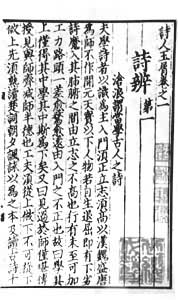 詩人玉屑卷之一
詩辨第一
滄浪謂當學古人之詩
夫學詩者以識為主入門須正立志須高以漢魏晉盛唐
為師不作開元天寶以下人物若自生退屈即有下劣
詩魔入其肺腑之間由立志之不高也行有未至可加
工力路頭一差愈騖愈遠由入門之不正也故曰學其
上僅得其中學其中斯為下矣又曰見過於師僅堪傳
授見與師齊減師半德也工夫須從上做下不可從下
做上先須熟讀楚詞朝夕諷詠以為之本及讀古詩